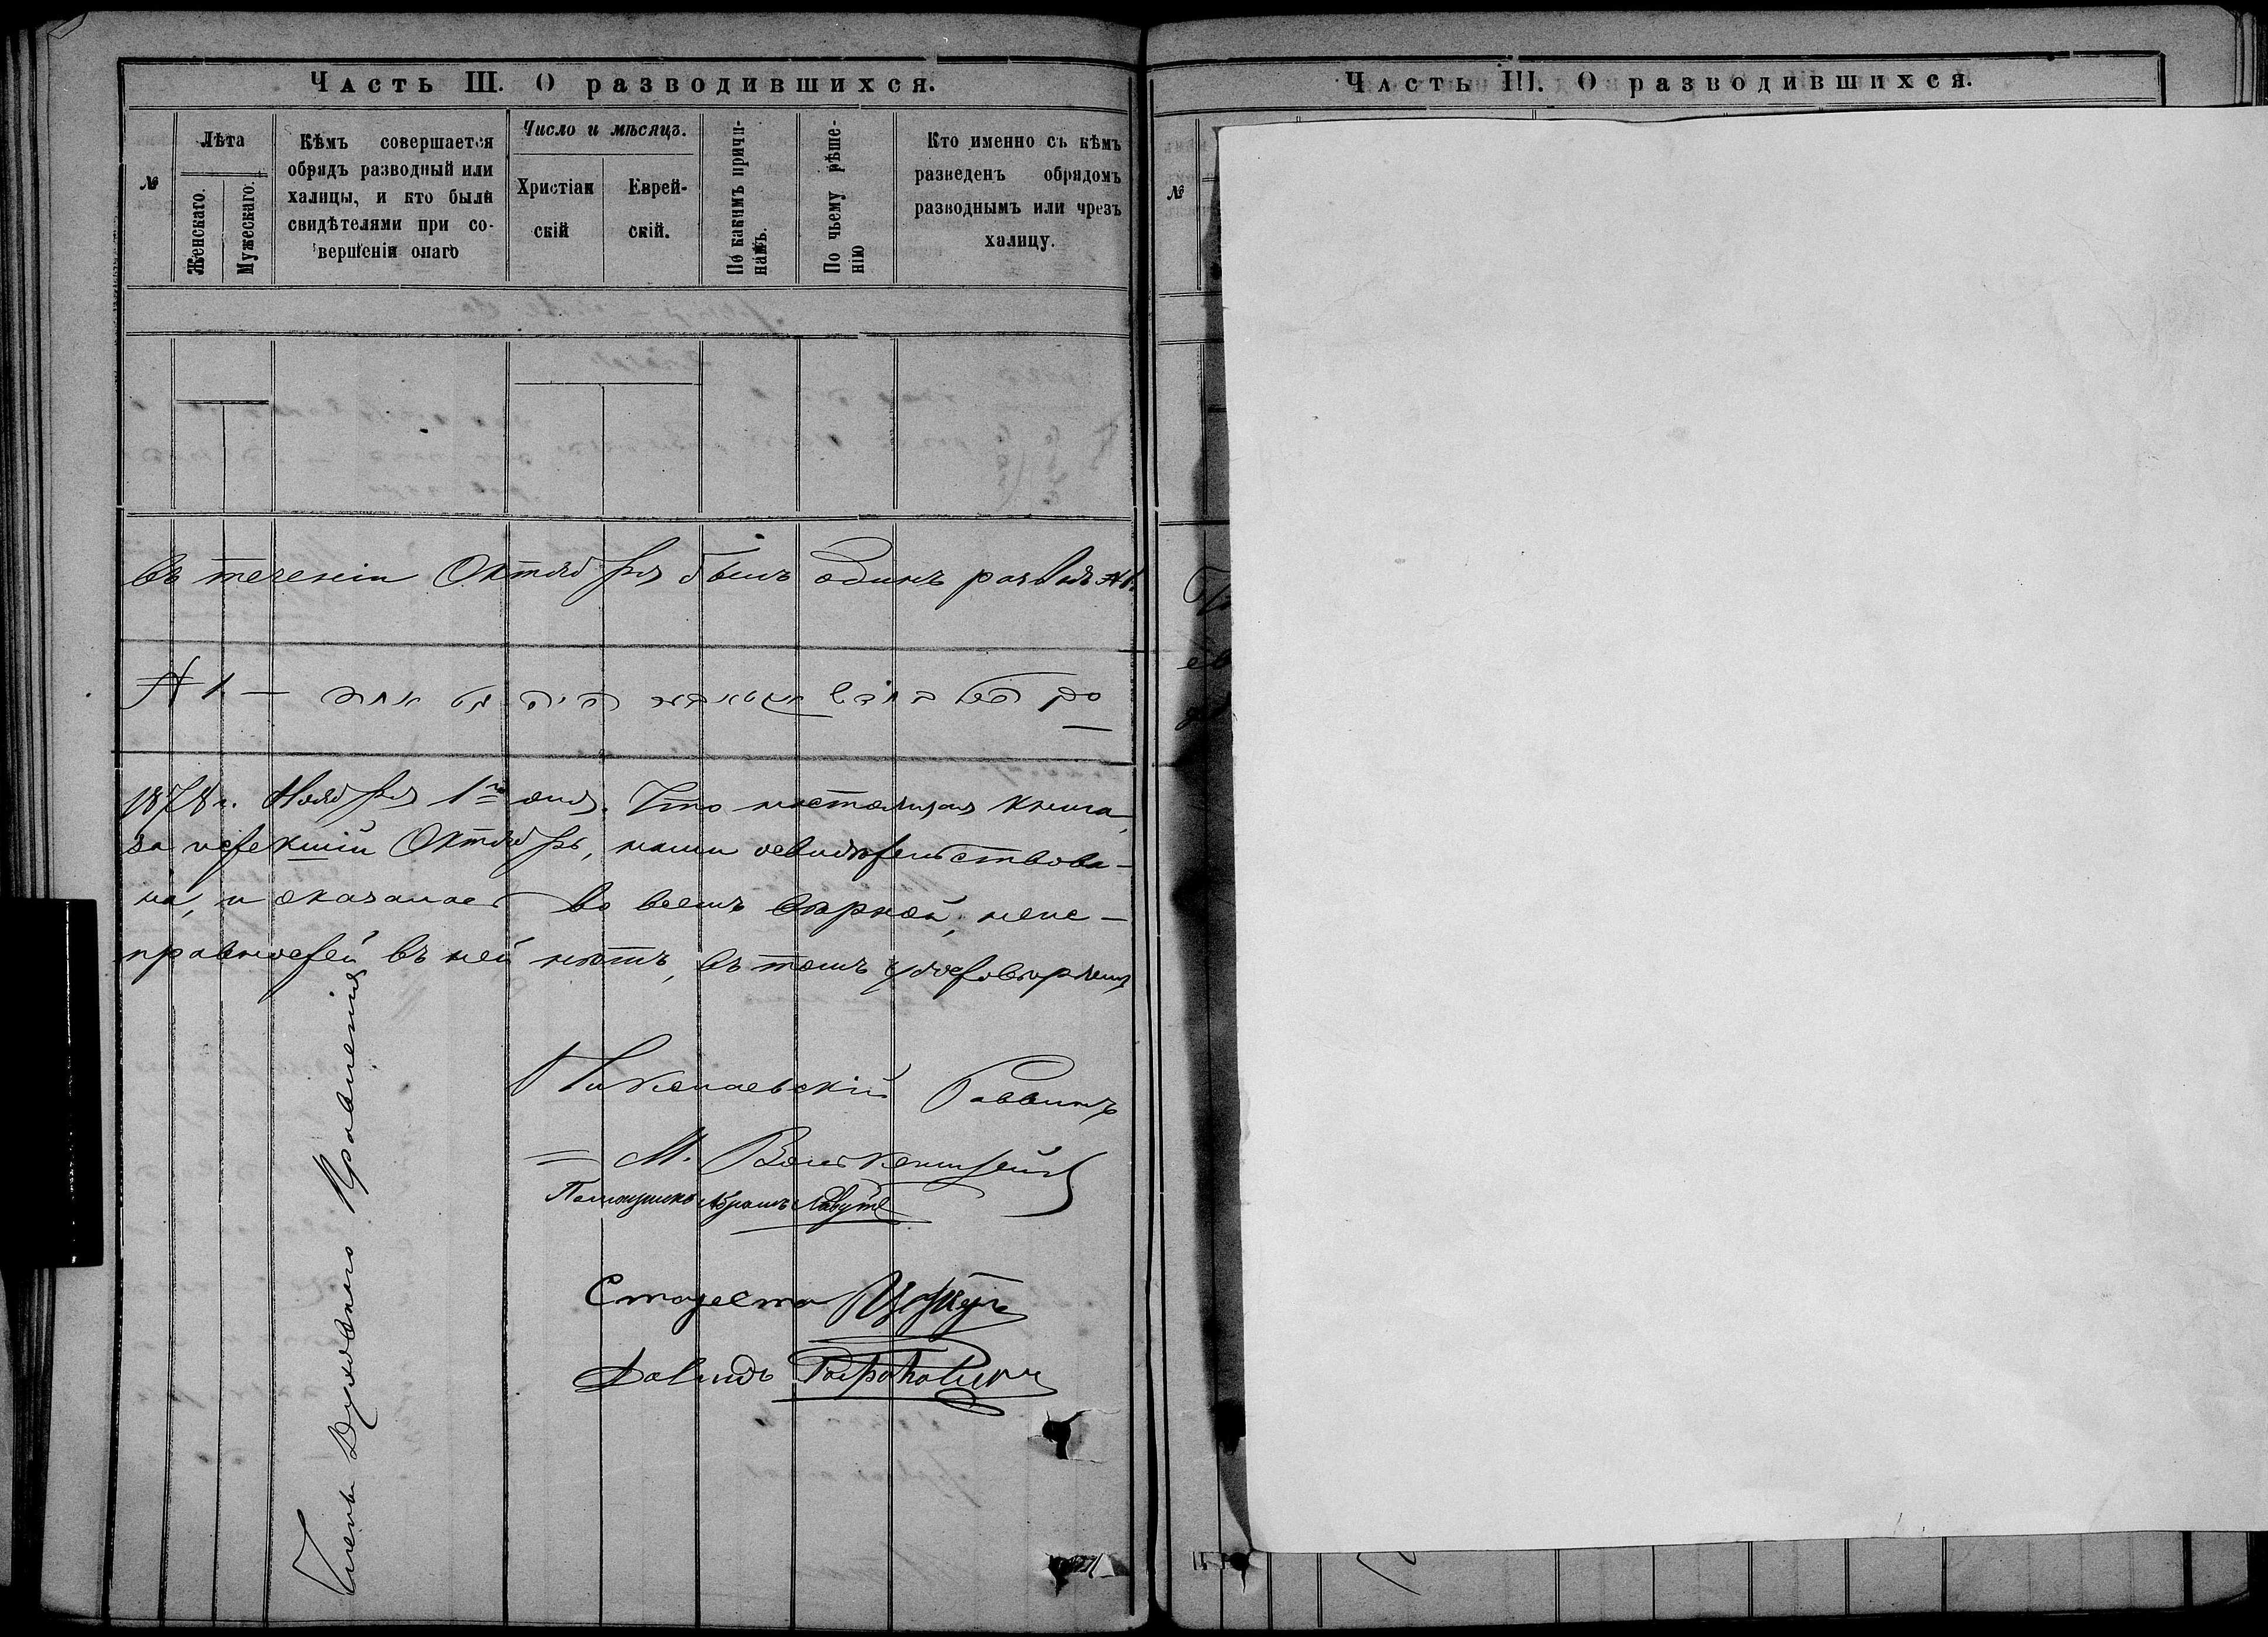 Часть III. О разводившихся.
№
Лѣта
Женскаго.
Мужескаго.
Кѣмъ совершается
обрядъ разводный или
халицы, и кто были
свидѣтелями при со-
вершеніи онаго
Число и мѣсяцъ.
Христіан
скій
Еврей-
скій.
По какимъ причи-
намъ.
По чьему рѣше-
нію
Кто именно съ кѣмъ
разведенъ обрядомъ
разводнымъ или чрезъ
халицу.
Въ теченіи Октября былъ одинъ разводъ №1.
№ 1 —
1878 г. Ноября 1го дня. Что настоящая книга,
за истекшій Октябрь, нами освидѣтельствова-
на, и оказалась во всемъ вѣрной, неис-
правностей въ ней нѣтъ, въ томъ удостовѣряемъ
Николаевскій Раввинъ
М.
Помощникъ Абрамъ
Староста
Давидъ
Члены Духовнаго Правленія
Часть III. О разводившихся.
№